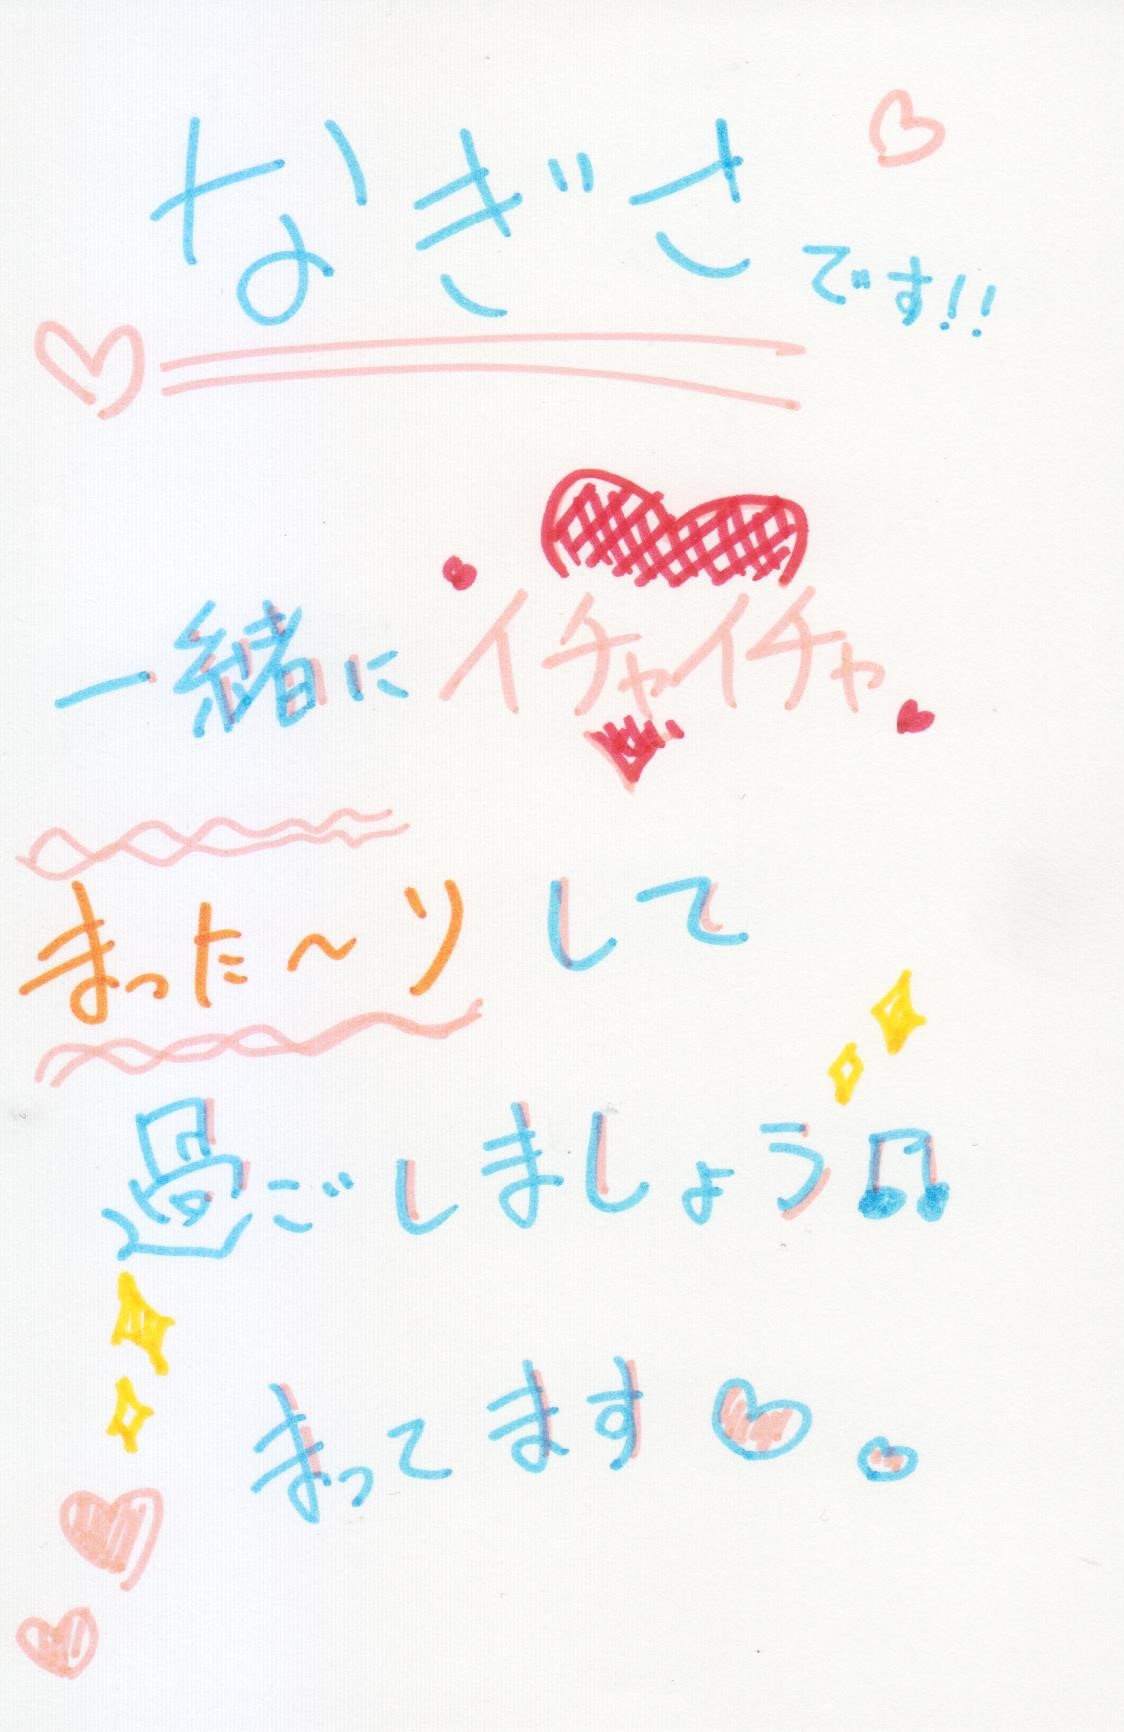 なぎさです!!
一緒にイチャイチャ
まった〜りして
過ごしましょう♫
まってます